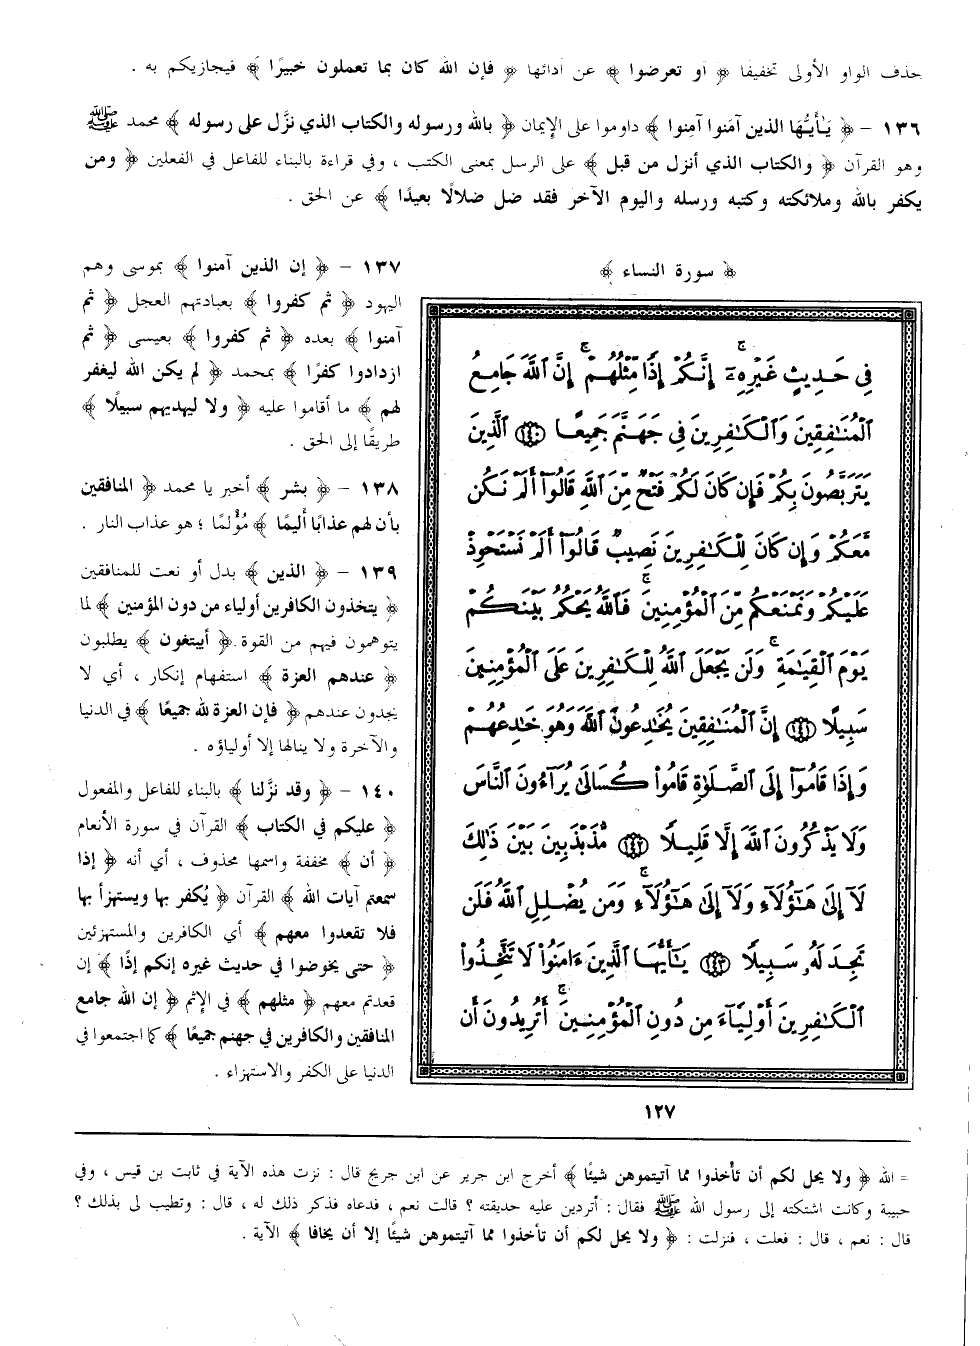 حذف الواو الأولى تخفيفا ﴿ او تعرضوا ﴾ عن أدائها ﴿ فإن الله كان بما تعملون خبيرًا ﴾ فيجازيكم به .
١٣٦ – ﴿ يَـٰأَيُّهَا الذين آمَنوا آمِنوا ﴾ داوموا على الإيمان ﴿ بالله ورسوله والكتاب الذي نزَّل على رسوله ﴾ محمد ﷺ
وهو القرآن ﴿ والكتاب الذي أنزل من قبل ﴾ على الرسل بمعنى الكتب ، وفي قراءة بالبناء للفاعل في الفعلين ﴿ ومن
يكفر بالله وملائكته وكتبه ورسله واليوم الآخر فقد ضل ضلالًا بعيدًا ﴾ عن الحق .
﴿ سورة النساء ﴾
فِى حَدِيثٍ غَيْرِهِۦٓ ۚ إِنَّكُمْ إِذًا مِّثْلُهُمْ ۗ إِنَّ ٱللَّهَ جَامِعُ
ٱلْمُنَـٰفِقِينَ وَٱلْكَـٰفِرِينَ فِى جَهَنَّمَ جَمِيعًا ﴿١٤٠﴾ ٱلَّذِينَ
يَتَرَبَّصُونَ بِكُمْ فَإِن كَانَ لَكُمْ فَتْحٌ مِّنَ ٱللَّهِ قَالُوٓا۟ أَلَمْ نَكُن
مَّعَكُمْ وَإِن كَانَ لِلْكَـٰفِرِينَ نَصِيبٌ قَالُوٓا۟ أَلَمْ نَسْتَحْوِذْ
عَلَيْكُمْ وَنَمْنَعْكُم مِّنَ ٱلْمُؤْمِنِينَ ۚ فَٱللَّهُ يَحْكُمُ بَيْنَكُمْ
يَوْمَ ٱلْقِيَـٰمَةِ ۗ وَلَن يَجْعَلَ ٱللَّهُ لِلْكَـٰفِرِينَ عَلَى ٱلْمُؤْمِنِينَ
سَبِيلًا ﴿١٤١﴾ إِنَّ ٱلْمُنَـٰفِقِينَ يُخَـٰدِعُونَ ٱللَّهَ وَهُوَ خَـٰدِعُهُمْ
وَإِذَا قَامُوٓا۟ إِلَى ٱلصَّلَوٰةِ قَامُوا۟ كُسَالَىٰ يُرَآءُونَ ٱلنَّاسَ
وَلَا يَذْكُرُونَ ٱللَّهَ إِلَّا قَلِيلًا ﴿١٤٢﴾ مُّذَبْذَبِينَ بَيْنَ ذَٰلِكَ
لَآ إِلَىٰ هَـٰٓؤُلَآءِ وَلَآ إِلَىٰ هَـٰٓؤُلَآءِ ۚ وَمَن يُضْلِلِ ٱللَّهُ فَلَن
تَجِدَ لَهُۥ سَبِيلًا ﴿١٤٣﴾ يَـٰٓأَيُّهَا ٱلَّذِينَ ءَامَنُوا۟ لَا تَتَّخِذُوا۟
ٱلْكَـٰفِرِينَ أَوْلِيَآءَ مِن دُونِ ٱلْمُؤْمِنِينَ ۚ أَتُرِيدُونَ أَن
١٢٧
١٣٧ – ﴿ إن الذين آمنوا ﴾ بموسى وهم
اليهود ﴿ ثم كفروا ﴾ بعبادتهم العجل ﴿ ثم
آمنوا ﴾ بعده ﴿ ثم كفروا ﴾ بعيسى ﴿ ثم
ازدادوا كفرًا ﴾ بمحمد ﴿ لم يكن الله ليغفر
لهم ﴾ ما أقاموا عليه ﴿ ولا ليهديهم سبيلًا ﴾
طريقًا إلى الحق .
١٣٨ – ﴿ بشر ﴾ أخبر يا محمد ﴿ المنافقين
بأن لهم عذابًا أليمًا ﴾ مُؤْلمًا ؛ هو عذاب النار .
١٣٩ – ﴿ الذين ﴾ بدل أو نعت للمنافقين
﴿ يتخذون الكافرين أولياء من دون المؤمنين ﴾ لما
يتوهمون فيهم من القوة ﴿ أيبتغون ﴾ يطلبون
﴿ عندهم العزة ﴾ استفهام إنكار ، أي لا
يجدون عندهم ﴿ فإن العزة لله جميعًا ﴾ في الدنيا
والآخرة ولا ينالها إلا أولياؤه .
١٤٠ – ﴿ وقد نزَّلنا ﴾ بالبناء للفاعل والمفعول
﴿ عليكم في الكتاب ﴾ القرآن في سورة الأنعام
﴿ أن ﴾ مخففة واسمها محذوف ، أي أنه ﴿ إذا
سمعتم آيات الله ﴾ القرآن ﴿ يُكفر بها ويستهزأ بها
فلا تقعدوا معهم ﴾ أي الكافرين والمستهزئين
﴿ حتى يخوضوا في حديث غيره إنكم إذًا ﴾ إن
قعدتم معهم ﴿ مثلهم ﴾ في الإثم ﴿ إن الله جامع
المنافقين والكافرين في جهنم جميعًا ﴾ كما اجتمعوا في
الدنيا على الكفر والاستهزاء .
= الله ﴿ ولا يحل لكم أن تأخذوا مما آتيتموهن شيئًا ﴾ أخرج ابن جرير عن ابن جريج قال : نزت هذه الآية في ثابت بن قيس ، وفي
حبيبة وكانت اشتكته إلى رسول الله ﷺ فقال : أتردين عليه حديقته ؟ قالت نعم ، فدعاه فذكر ذلك له ، قال : وتطيب لى بذلك ؟
قال : نعم ، قال : فعلت ، فنزلت : ﴿ ولا يحل لكم أن تأخذوا مما آتيتموهن شيئًا إلا أن يخافا ﴾ الآية .